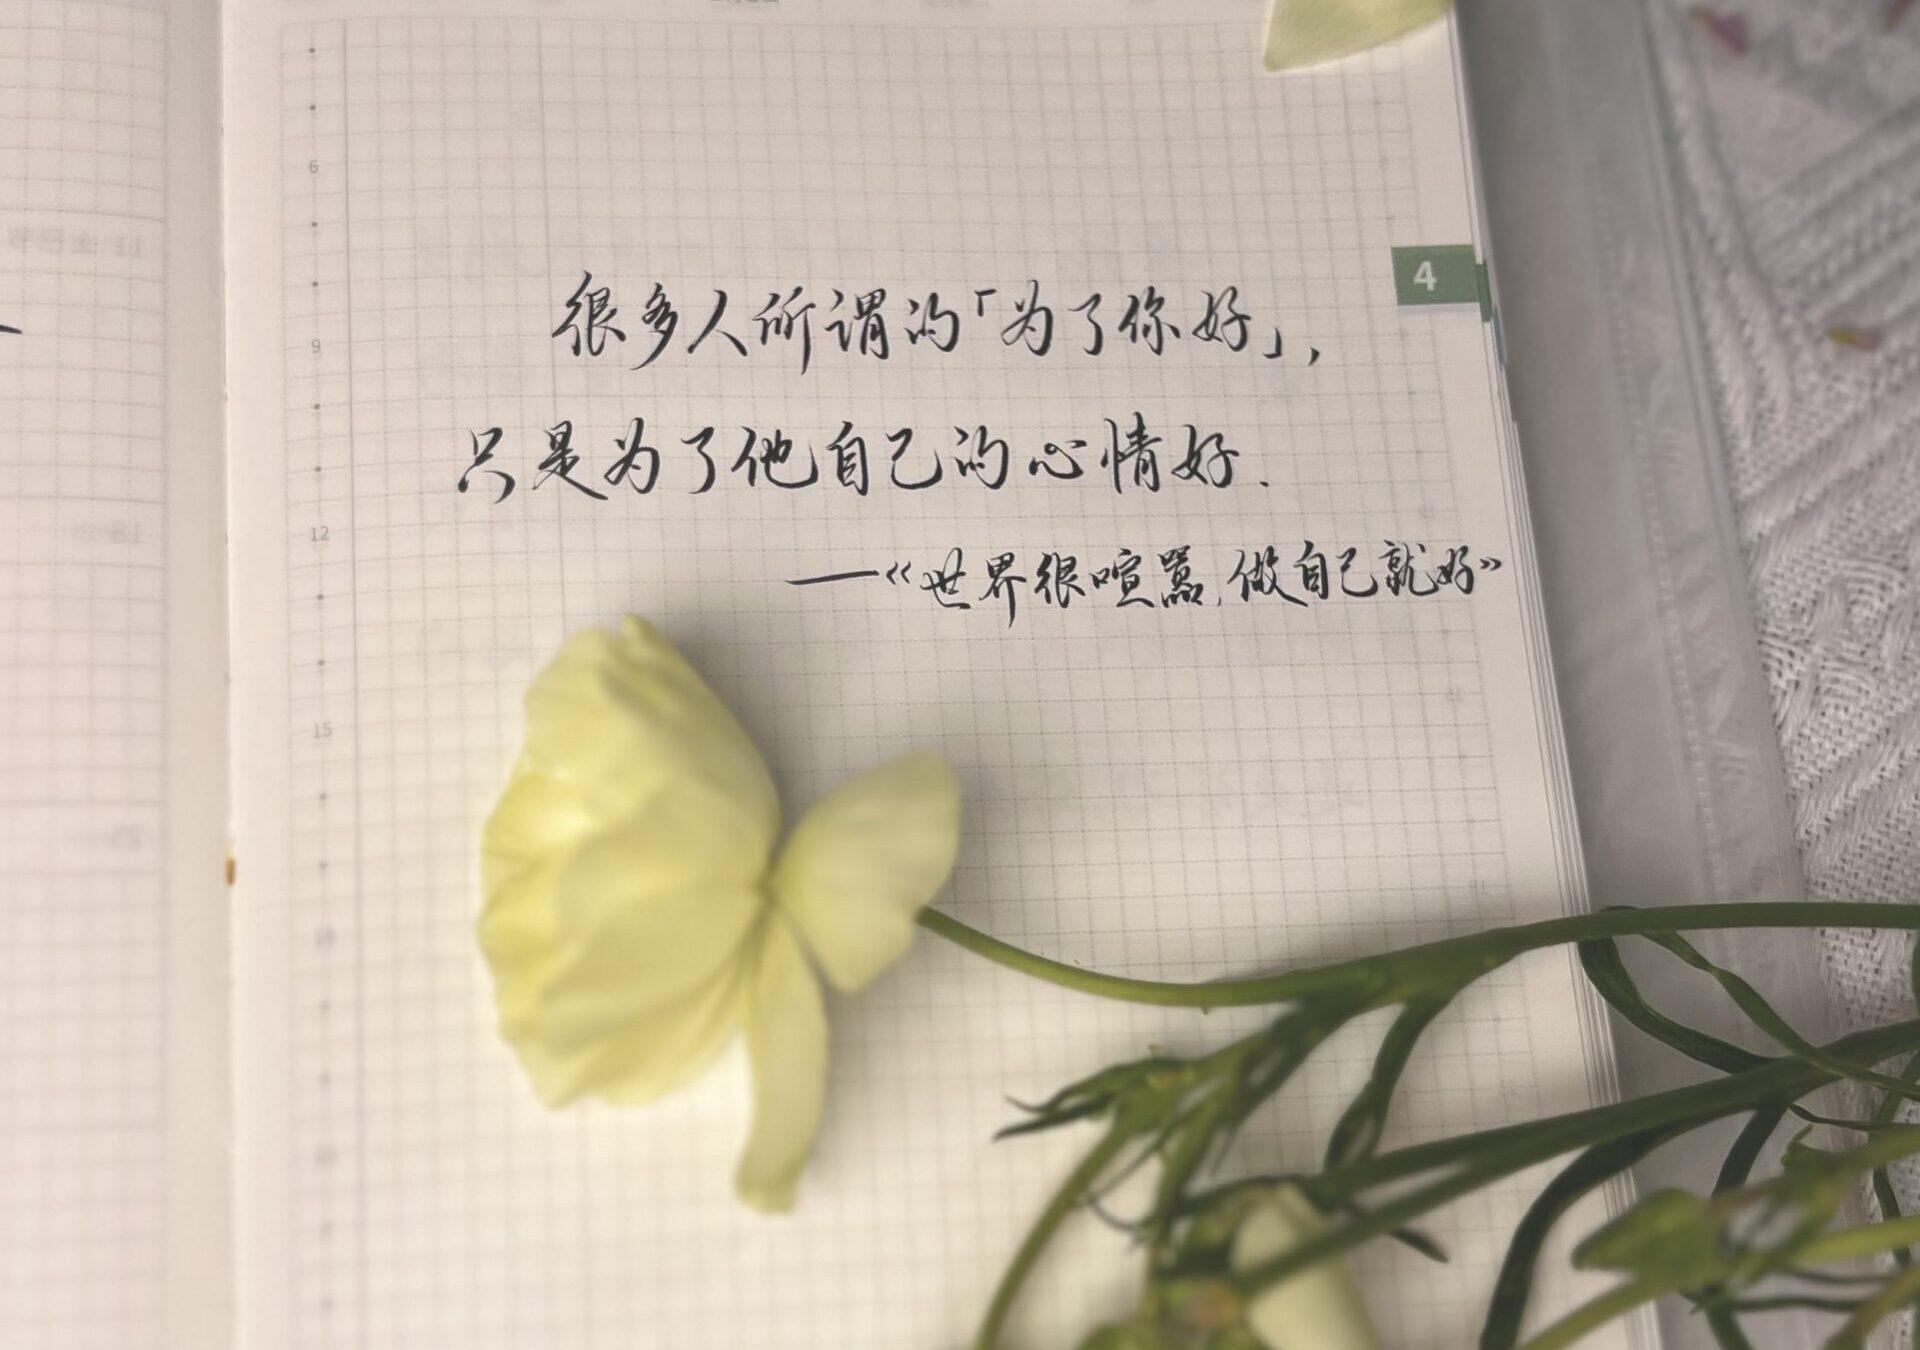 4
6
9
12
15
很多人所谓的「为了你好」,
只是为了他自己的心情好.
——《世界很喧嚣,做自己就好》